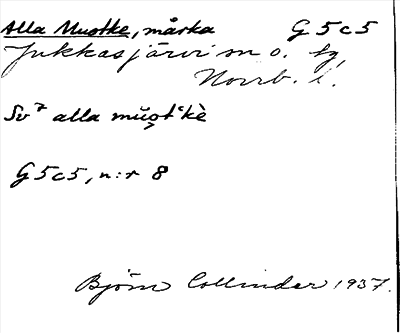 Alla Mustke, mårka G 5 c 5
Jukkasjärvi sn o. tg,
Norrb. l.
Sv⁷ alla mŭo̯tʿkè
G 5 c 5, n:r 8
Björn Collinder 1937.